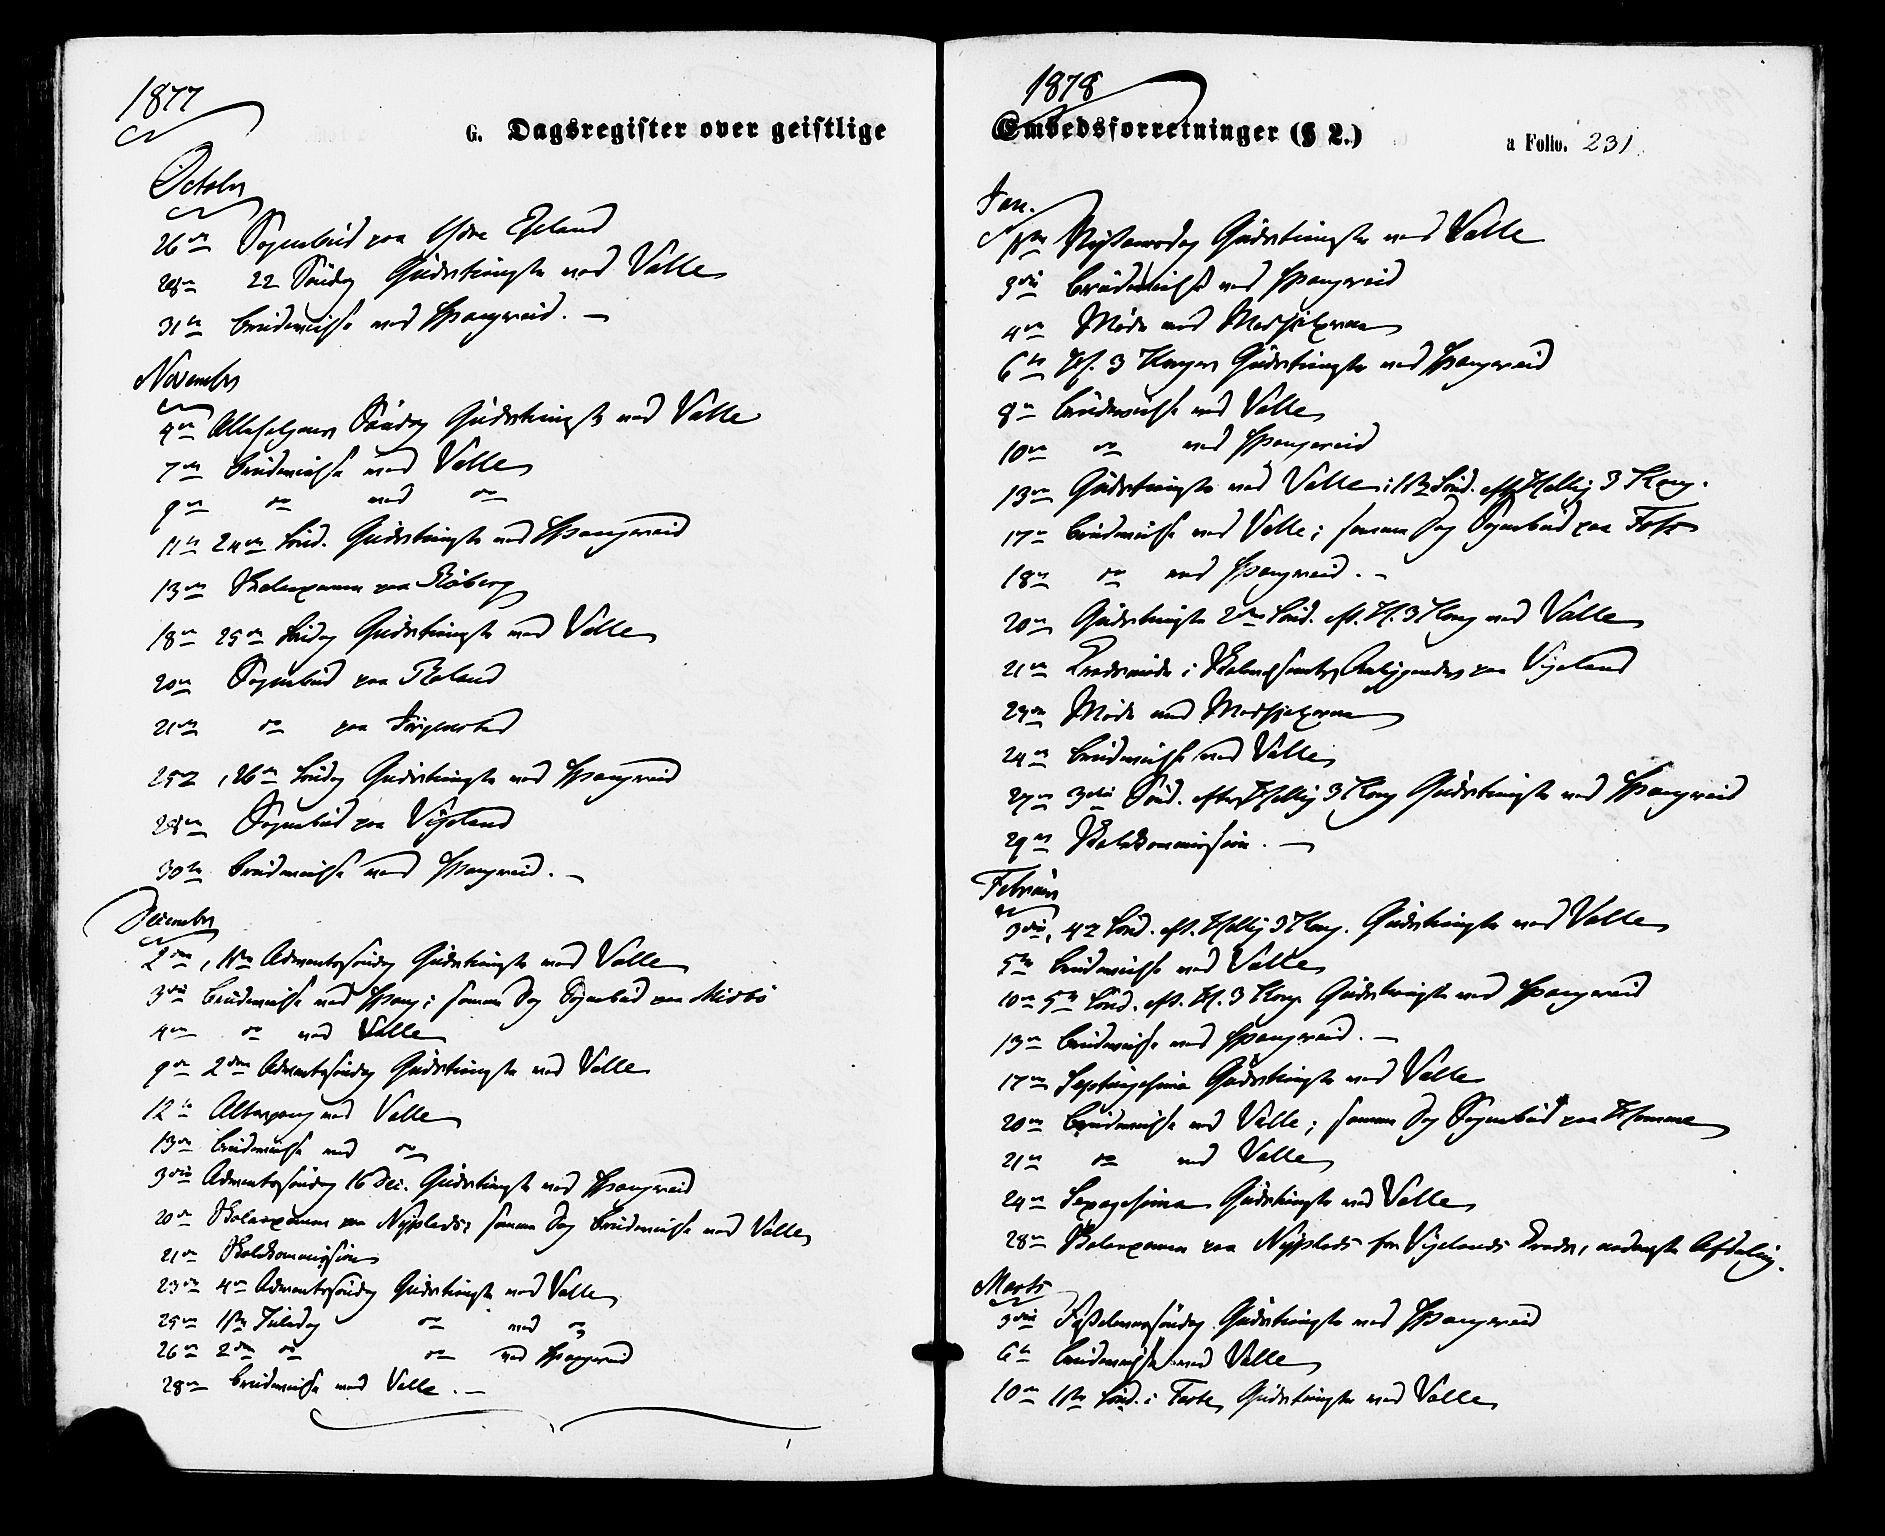 1877
G. Dagsregister over geistlige
October
26de Sognebud paa Ydre Egeland
28de 22 Søndag Gudstieneste ved Valle
31te Brudevielse ved Spangereid. —
November
4de Allehelgens Søndag Gudstieneste ved Valle
7de Brudevielse ved Valle
9de do ved do
11te 24de Sønd. Gudstieneste ved Spangereid
13de Skoleexamen paa
18de 25de Søndag Gudstieneste ved Valle
20de Sognebud paa
21de do paa
25de, 26de Søndag Gudstieneste ved Spangereid
28de Sognebud paa Vigeland
30te Brudevielse ved Spangereid. —
December
2den, 1ste Adventssøndag Gudstieneste ved Valle
3die Brudevielse ved Spang; samme Dag Sognebud paa
4de do ved Valle
9de 2den Adventssøndag Gudstieneste ved Valle
12te Altergang ved Valle
13de Brudevielse ved do
3die Adventssøndag 16 Dec. Gudstieneste ved Spangereid
20de Skoleexamen paa Nyplads; samme Dag Brudevielse ved Valle
21de Skolekommission
23de 4de Adventssøndag Gudstieneste ved Valle
25de 1ste Juledag do ved do
26de 2den do do ved Spangereid
28de Brudevielse ved Valle. —
1878
Embedsforretninger (§ 2.)
a Folio. 231.
Jan.
1ste Nytaarsdag Gudstieneste ved Valle
3die Brudevielse ved Spangereid
4de Møde med Medhjelperne
6te H. 3 Konger Gudstieneste ved Spangereid
8de Brudevielse ved Valle
10de do ved Spangereid
13de Gudstieneste ved Valle; 1ste Sønd. eft. Hellig 3 Kong.
17de Brudevielse ved Valle; samme Dag Sognebud paa
18de do ved Spangereid. —
20de Gudstieneste 2den Sønd. eft. H. 3 Kong ved Valle
21de Kredsmøde i Skolens Anliggender paa Vigeland
23de Møde med Medhjelperne
24de Brudevielse ved Valle
27de 3die Sønd. efter Hellig 3 Kong Gudstieneste ved Spangereid
29de Skolekommission. —
Februar
3die, 4de Sønd. eft. Hellig 3 Kong. Gudstieneste ved Valle
5te Brudevielse ved Valle
10de 5te Sønd. eft. H. 3 Kong. Gudstieneste ved Spangereid
13de Brudevielse ved Spangereid. —
17de Septuagesima Gudstieneste ved Valle
20de Brudevielse ved Valle; samme Dag Sognebud paa Homme
21de do ved Valle
24de Sexagesima Gudstieneste ved Valle
28de Skoleexamen paa Nyplads for Vigelands Kreds, nederste Afdeling.
Marts
3die Fastelavnssøndag Gudstieneste ved Spangereid
6te Brudevielse ved Valle
10de 1ste Sønd. i Faste, Gudstieneste ved Valle